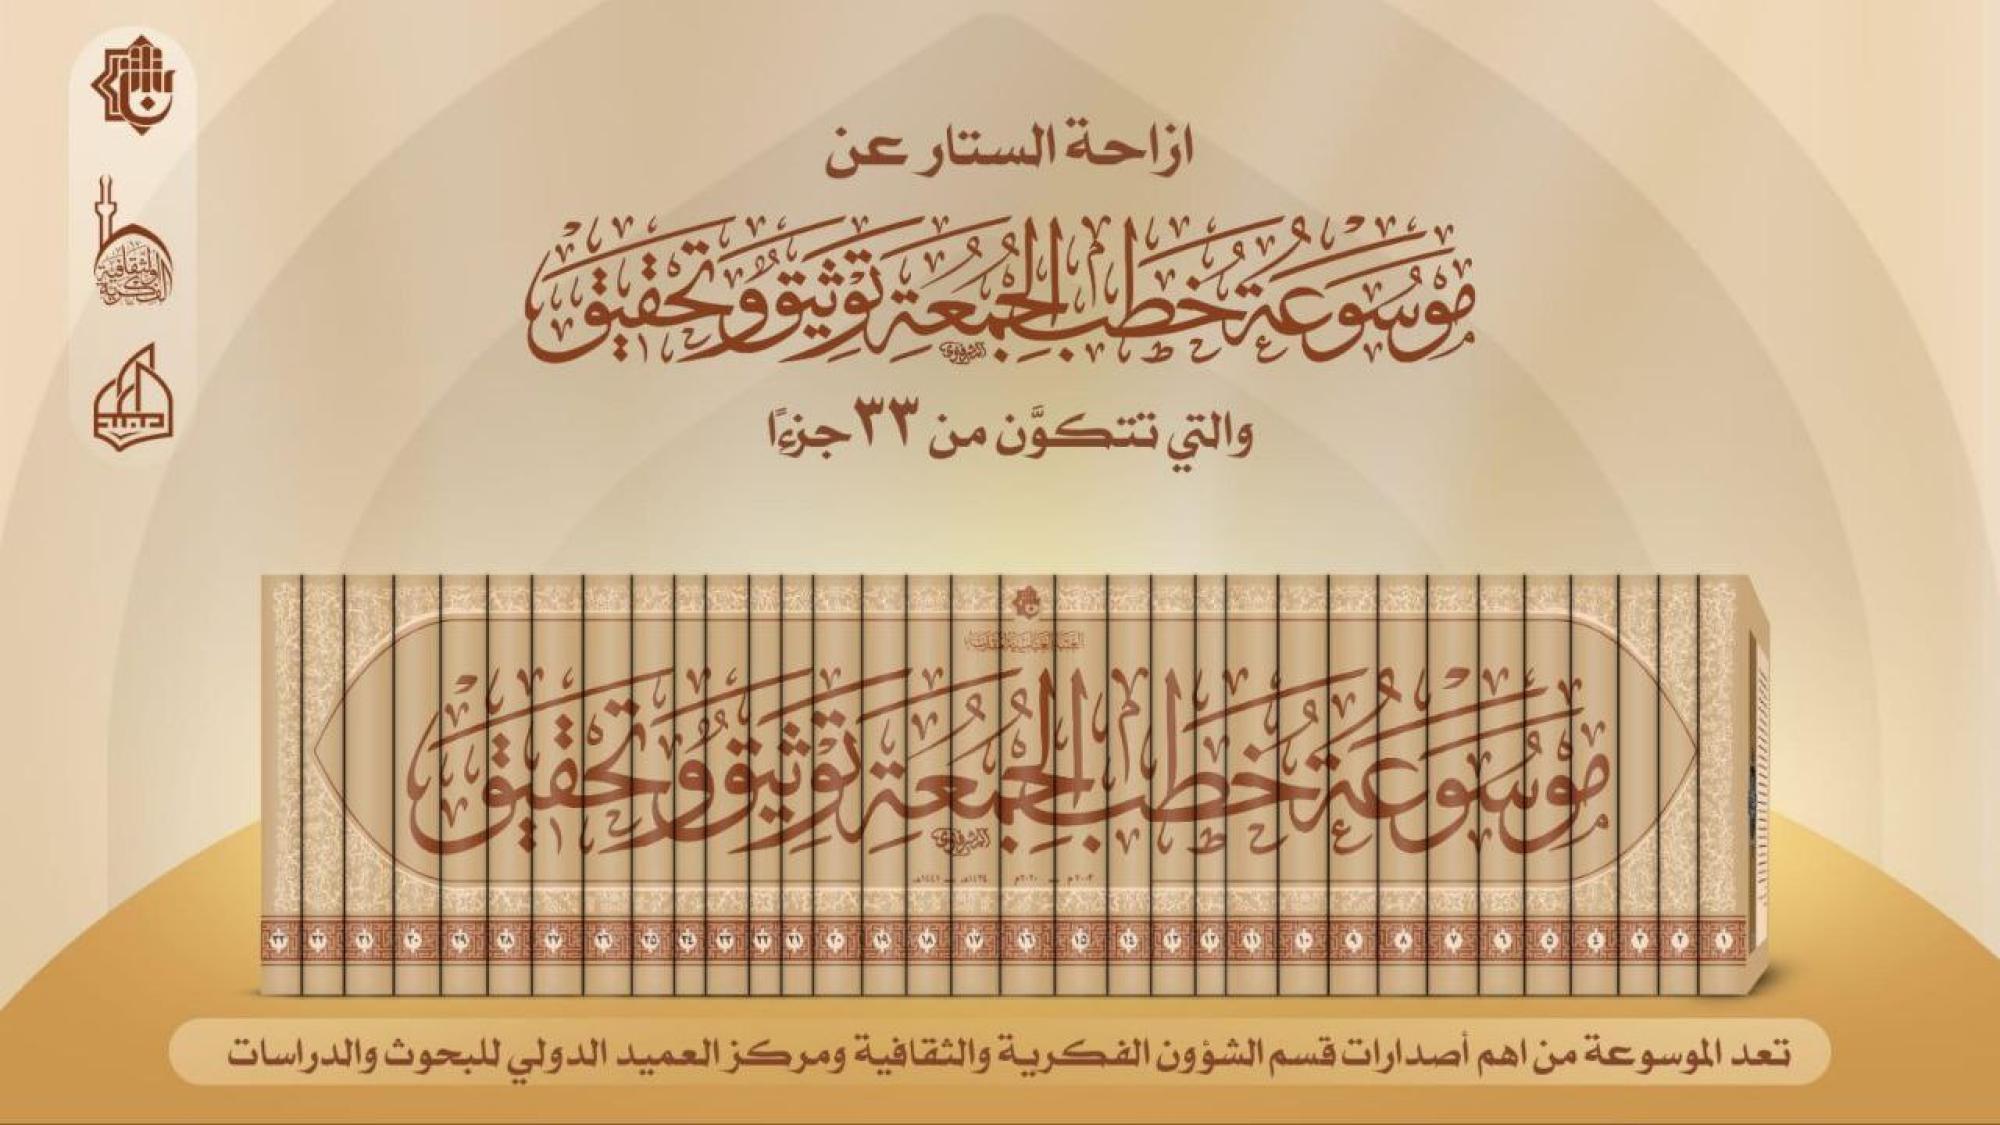 ازاحة الستار عن
موسوعة خطب الجمعة توثيق وتحقيق
والتي تتكوَّن من ٣٣ جزءًا
موسوعة خطب الجمعة توثيق وتحقيق
٣٣ ٣٢ ٣١ ٣٠ ٢٩ ٢٨ ٢٧ ٢٦ ٢٥ ٢٤ ٢٣ ٢٢ ٢١ ٢٠ ١٩ ١٨ ١٧ ١٦ ١٥ ١٤ ١٣ ١٢ ١١ ١٠ ٩ ٨ ٧ ٦ ٥ ٤ ٣ ٢ ١
تعد الموسوعة من اهم أصدارات قسم الشؤون الفكرية والثقافية ومركز العميد الدولي للبحوث والدراسات